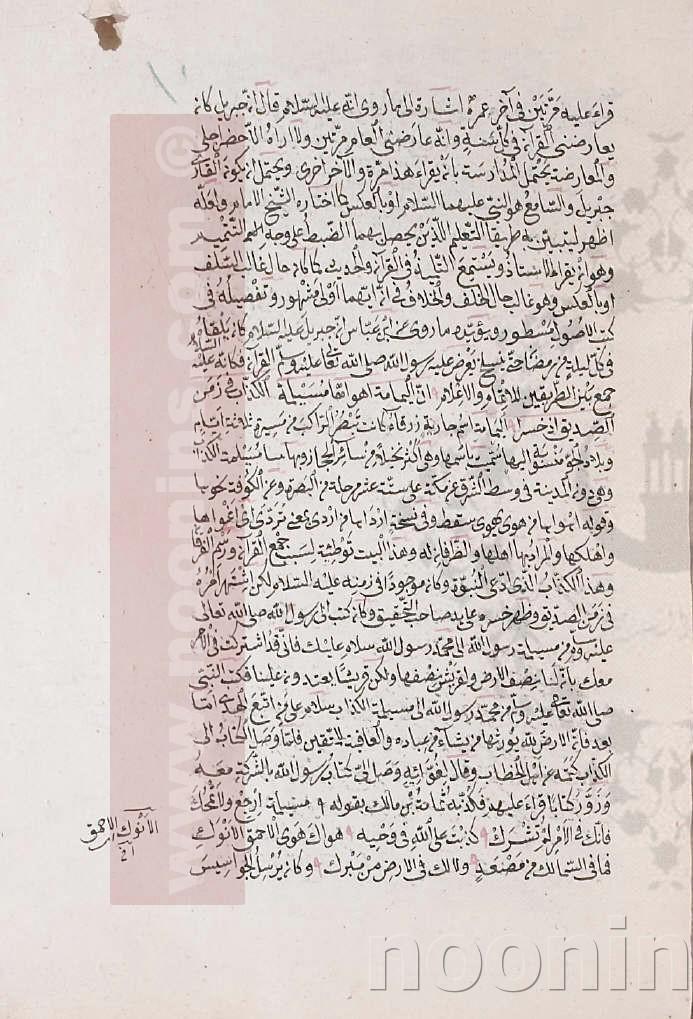 قراءَ عليه مرّتين في آخر عمره اشارة الى ما روى انه عليه السلام قال انّ جبريل كان
يعارضني القرآن في كل سنة وانه عارضني العام مرتين ولا اراه الا حضر اجلي
والمعارضة يحتمل المدارسة بان يقراء هذا مرة والآخر اخرى ويحتمل ان يكون القارئ
جبريل والسامع هو النبي عليهما السلام او بالعكس كما اختاره الشيخ الامام ولعله
اظهر ليتبين به طريقا التعليم الذين يحصل بهما الضبط على وجه التتميم
وهو ان يقرأ الاستاذ ويستمع التلميذ في القرآن والحديث كما كان حال غالب السلف
او بالعكس وهو غالب حال الخلف والخلاف في انّ ايّهما اولى مشهور وتفصيله في
كتب الاصول مسطور ويؤيده ما روى عن ابن عباس ان جبريل عليه السلام كان يلقاه
في كل ليلة من رمضان حتى ينسلخ يعرض عليه رسول الله صلى الله تعالى عليه وسلم القرآن فكانه عليه السلام
جمع بين الطريقين للاتمام والاعلام انّ اليمامة اهواها مسيلمة الكذاب في زمن
الصديق اذ خسرا اليمامة اسم جارية زرقاء كانت تبصر الراكب من مسيرة ثلاثة ايام
وبلاد الجو منسوبة اليها سميت باسمها وهي اكثر نخيلا من سائر الحجاز وبها مسيلمة الكذاب
وهي دون المدينة في وسط الشرق عن مكة على ستة عشر مرحلة من البصرة وعن الكوفة نحوها
وقوله اهواها من هوى يهوى سقط وفي نسخة ارداها من اردى بمعنى تردى اي اغواها
واهلكها والمراد بها اهلها والظرفان له وهذا البيت توطئة لسبب جمع القرآن ورسم الفرقان
وهذا الكذاب الذي ادعى النبوة وكان موجودا في زمنه عليه السلام لكن اشتهر امره
في زمن الصديق وظهر خسره على يد صاحب التحقيق وكان كتب الى رسول الله صلى الله تعالى
عليه وسلم من مسيلمة رسول الله الى محمد رسول الله سلام عليك فاني قد اشتركت في الامر
معك بان لنا نصف الارض ولقريش نصفها ولكن قريشا يعتدون علينا فكتب النبي
صلى الله تعالى عليه وسلم من محمد رسول الله الى مسيلمة الكذاب سلام على من اتبع الهدى اما
بعد فان الارض لله يورثها من يشاء من عباده والعاقبة للمتقين فلما وصل الكتاب الى
الكذاب كتمه عن اهل الخطاب وقال لعل وصل الى كتاب رسول الله بالشركة معه
وزور كتابا قراءَ عليهم فكذبه ثمامة بن مالك بقوله مسيلمة ارجع ولا تمحك
فانك في الامر لم تشرك كذبت على الله في وحيه هواك هوى الاحمق الانوك
فما في السما لك من مصعد ولا لك في الارض من مبرك وكان يرسل الجواسيس
الانوك الاحمق
www.noonins.com ©
noonin